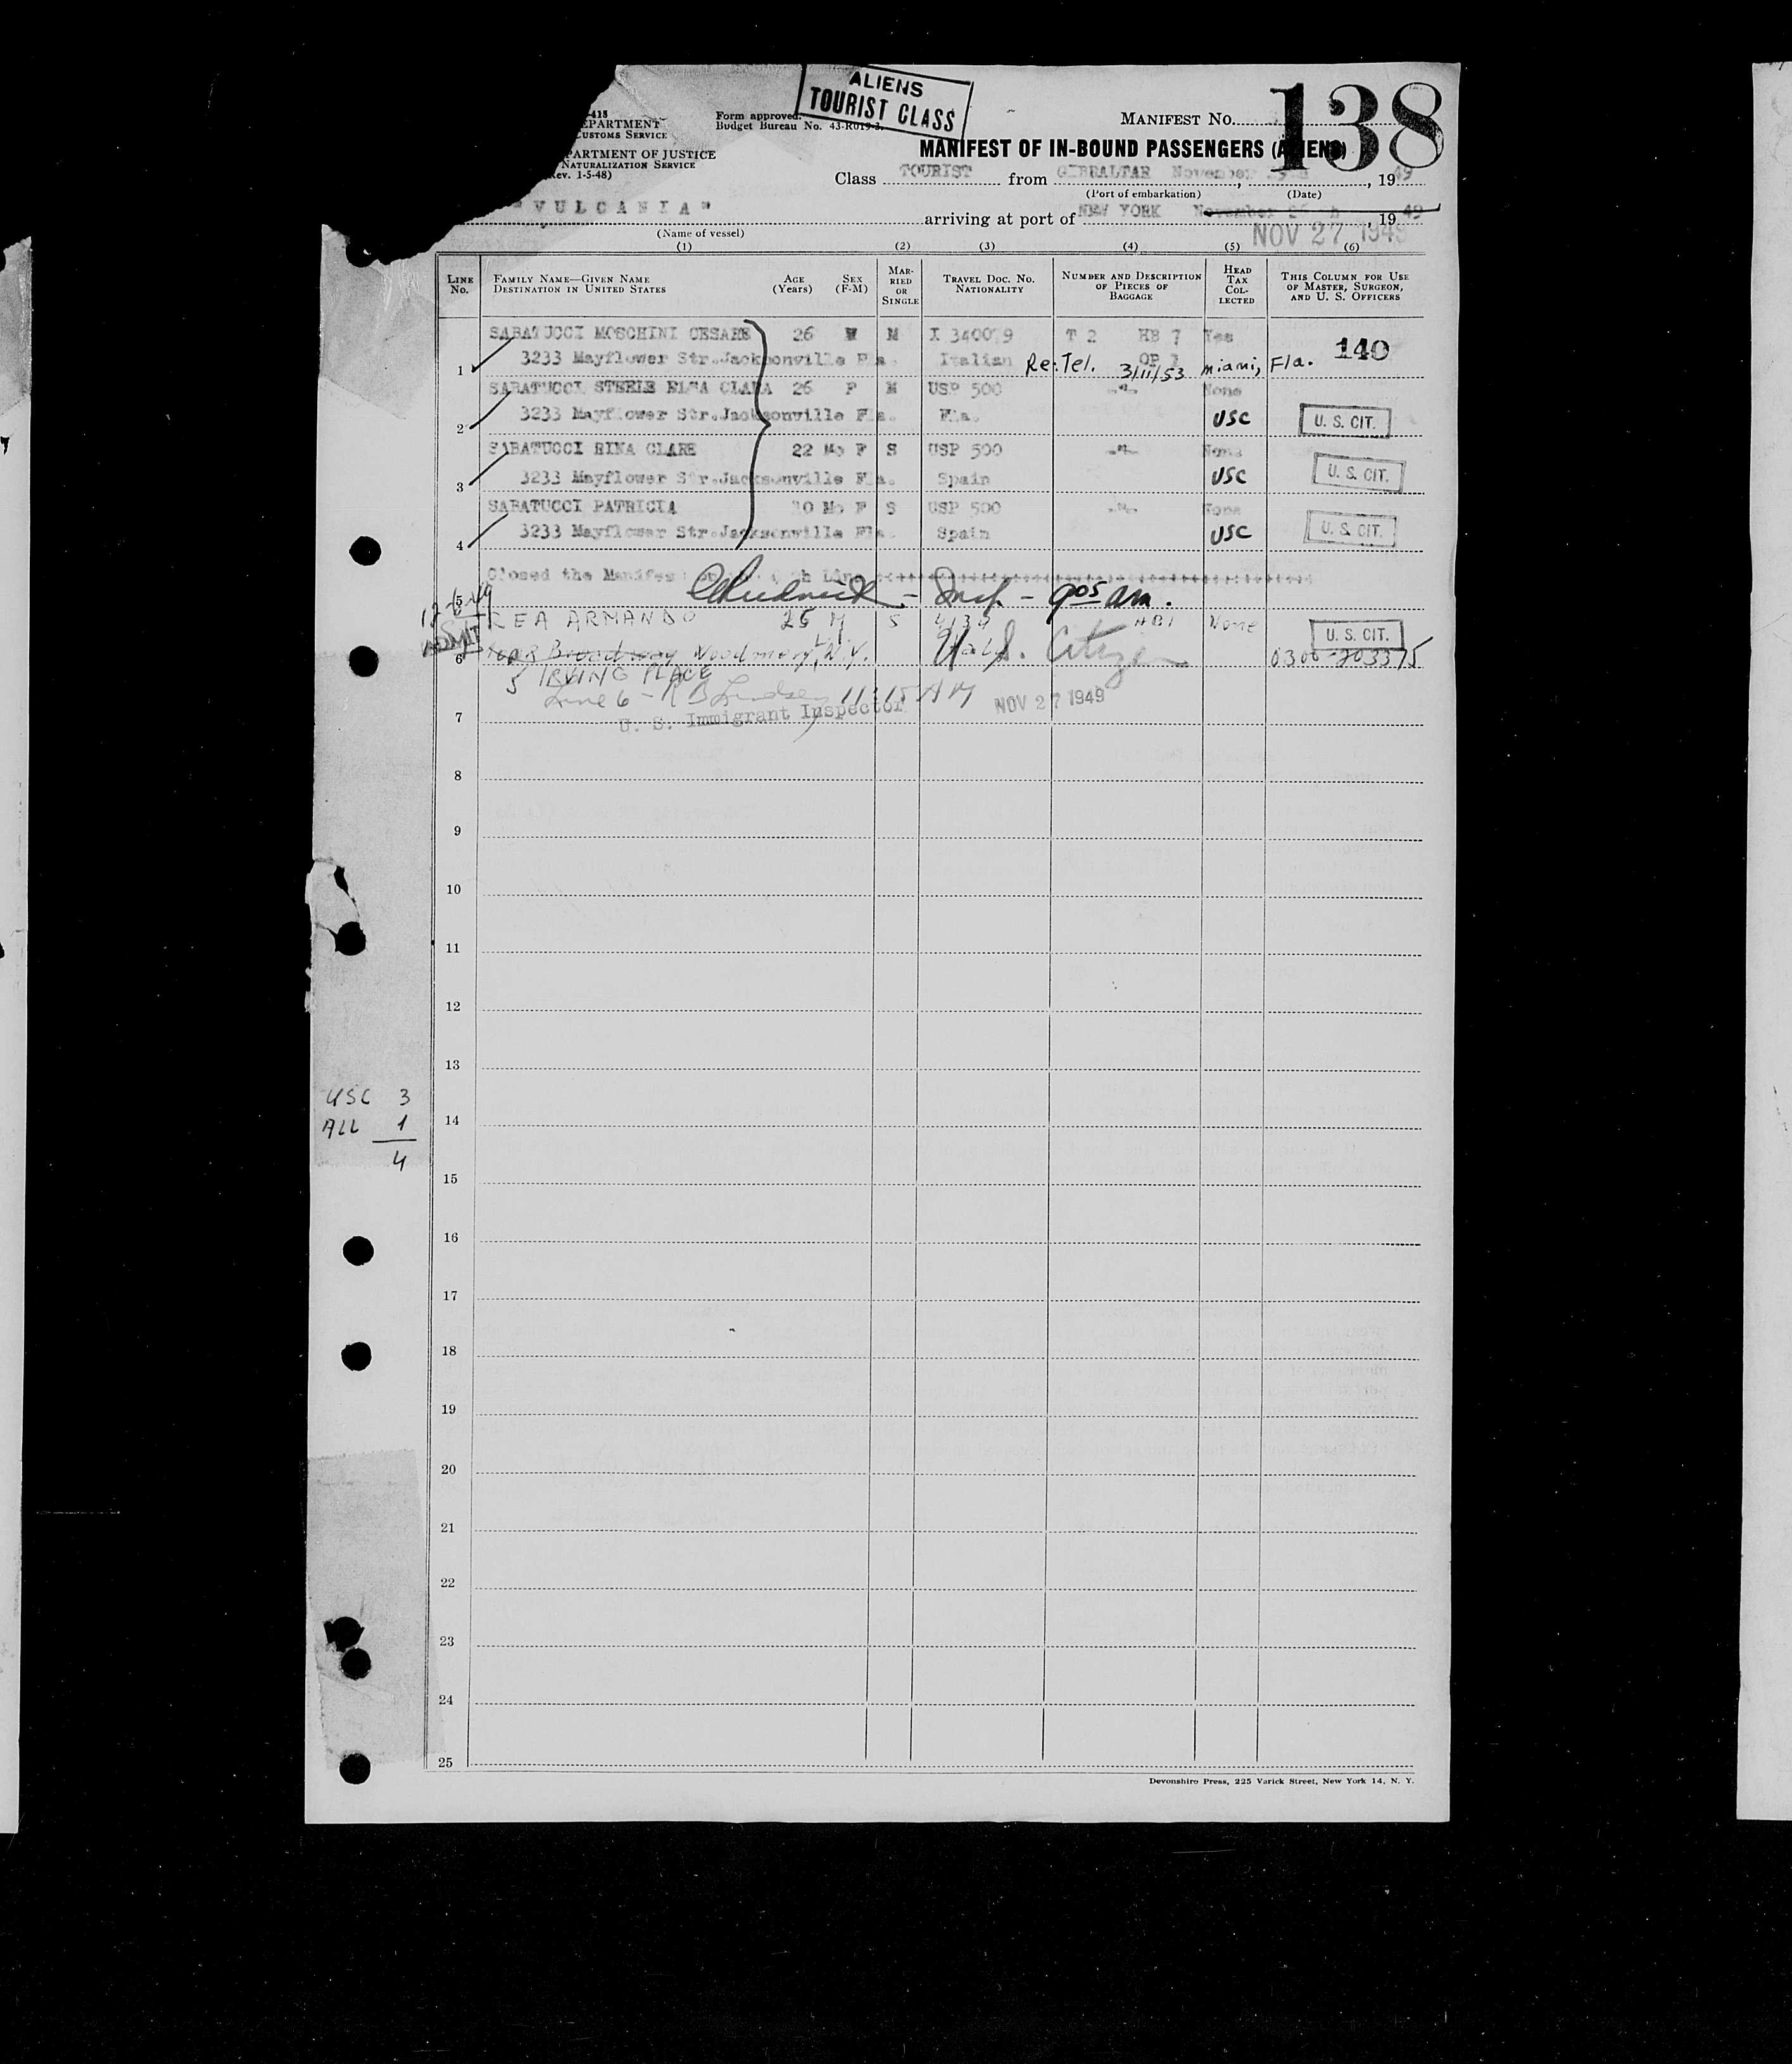 ALIENS
TOURIST CLASS
138
-415
EPARTMENT
CUSTOMS SERVICE
PARTMENT OF JUSTICE
NATURALIZATION SERVICE
(Rev. 1-5-48)
Form approved.
Budget Bureau No. 43-R019-3.
MANIFEST No.
MANIFEST OF IN-BOUND PASSENGERS (ALIENS)
Class TOURIST from GIBRALTAR November , 1949
(Port of embarkation) (Date)
"VULCANIA" arriving at port of NEW YORK November , 1949
(Name of vessel) NOV 27 1949
(1) (2) (3) (4) (5) (6)
LINE No. FAMILY NAME—GIVEN NAME DESTINATION IN UNITED STATES AGE (Years) SEX (F-M) MARRIED OR SINGLE TRAVEL DOC. NO. NATIONALITY NUMBER AND DESCRIPTION OF PIECES OF BAGGAGE HEAD TAX COLLECTED THIS COLUMN FOR USE OF MASTER, SURGEON, AND U. S. OFFICERS
SABATUCCI MOSCHINI CESARE 26 M M I 340079 T 2 HB 7 Yes 140
1 3233 Mayflower Str.Jacksonville Fla. Italian Re:Tel. 3/11/53 Miami, Fla.
SABATUCCI STEELE ELMA CLARA 26 F M USP 500 -"- None
2 3233 Mayflower Str.Jacksonville Fla. Fla. USC U. S. CIT.
SABATUCCI RINA CLARE 22 Mo F S USP 500 -"- None
3 3233 Mayflower Str.Jacksonville Fla. Spain USC U. S. CIT.
SABATUCCI PATRICIA 10 Mo F S USP 500 -"- None
4 3233 Mayflower Str.Jacksonville Fla. Spain USC U. S. CIT.
Closed the Manifest Line
5 - Insp - 9 05 am.
REA ARMANDO 25 M S HB1 None U. S. CIT.
ADMIT
6 Broadway Woodmere, L.I. N.Y. U.S. Citizen 0300-203375
5 IRVING PLACE
Line 6 - R B Lindsey 11:15 AM
U. S. Immigrant Inspector NOV 27 1949
7
8
9
10
11
12
13
USC 3
14
ALL 1
4
15
16
17
18
19
20
21
22
23
24
25
Devonshire Press, 225 Varick Street, New York 14, N. Y.